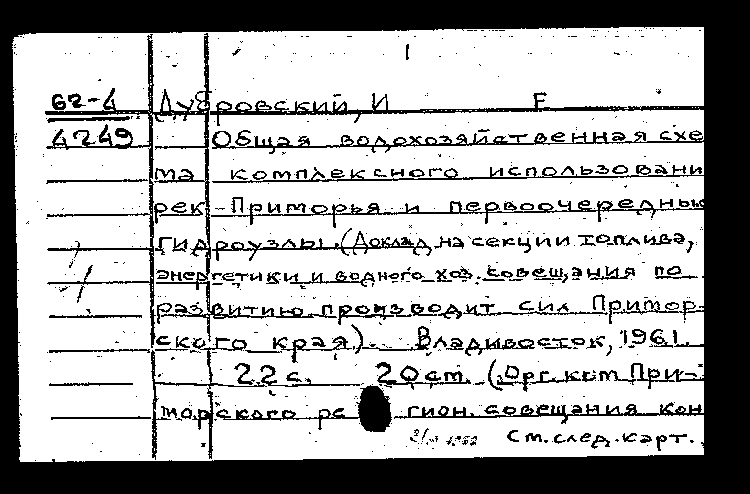 1
62-4 Дубровский, И Е
4249 Общая водохозяйственная схе
ма комплексного использовани
рек Приморья и первоочередны
гидроузлы. (Доклад на секции топлива,
энергетики и водного хоз. совещания по
развитию производит сил Примор-
ского края). Владивосток, 1961.
22 с. 20 см. (Орг. ком При-
морского ре гион. совещания кон
См. след. карт.